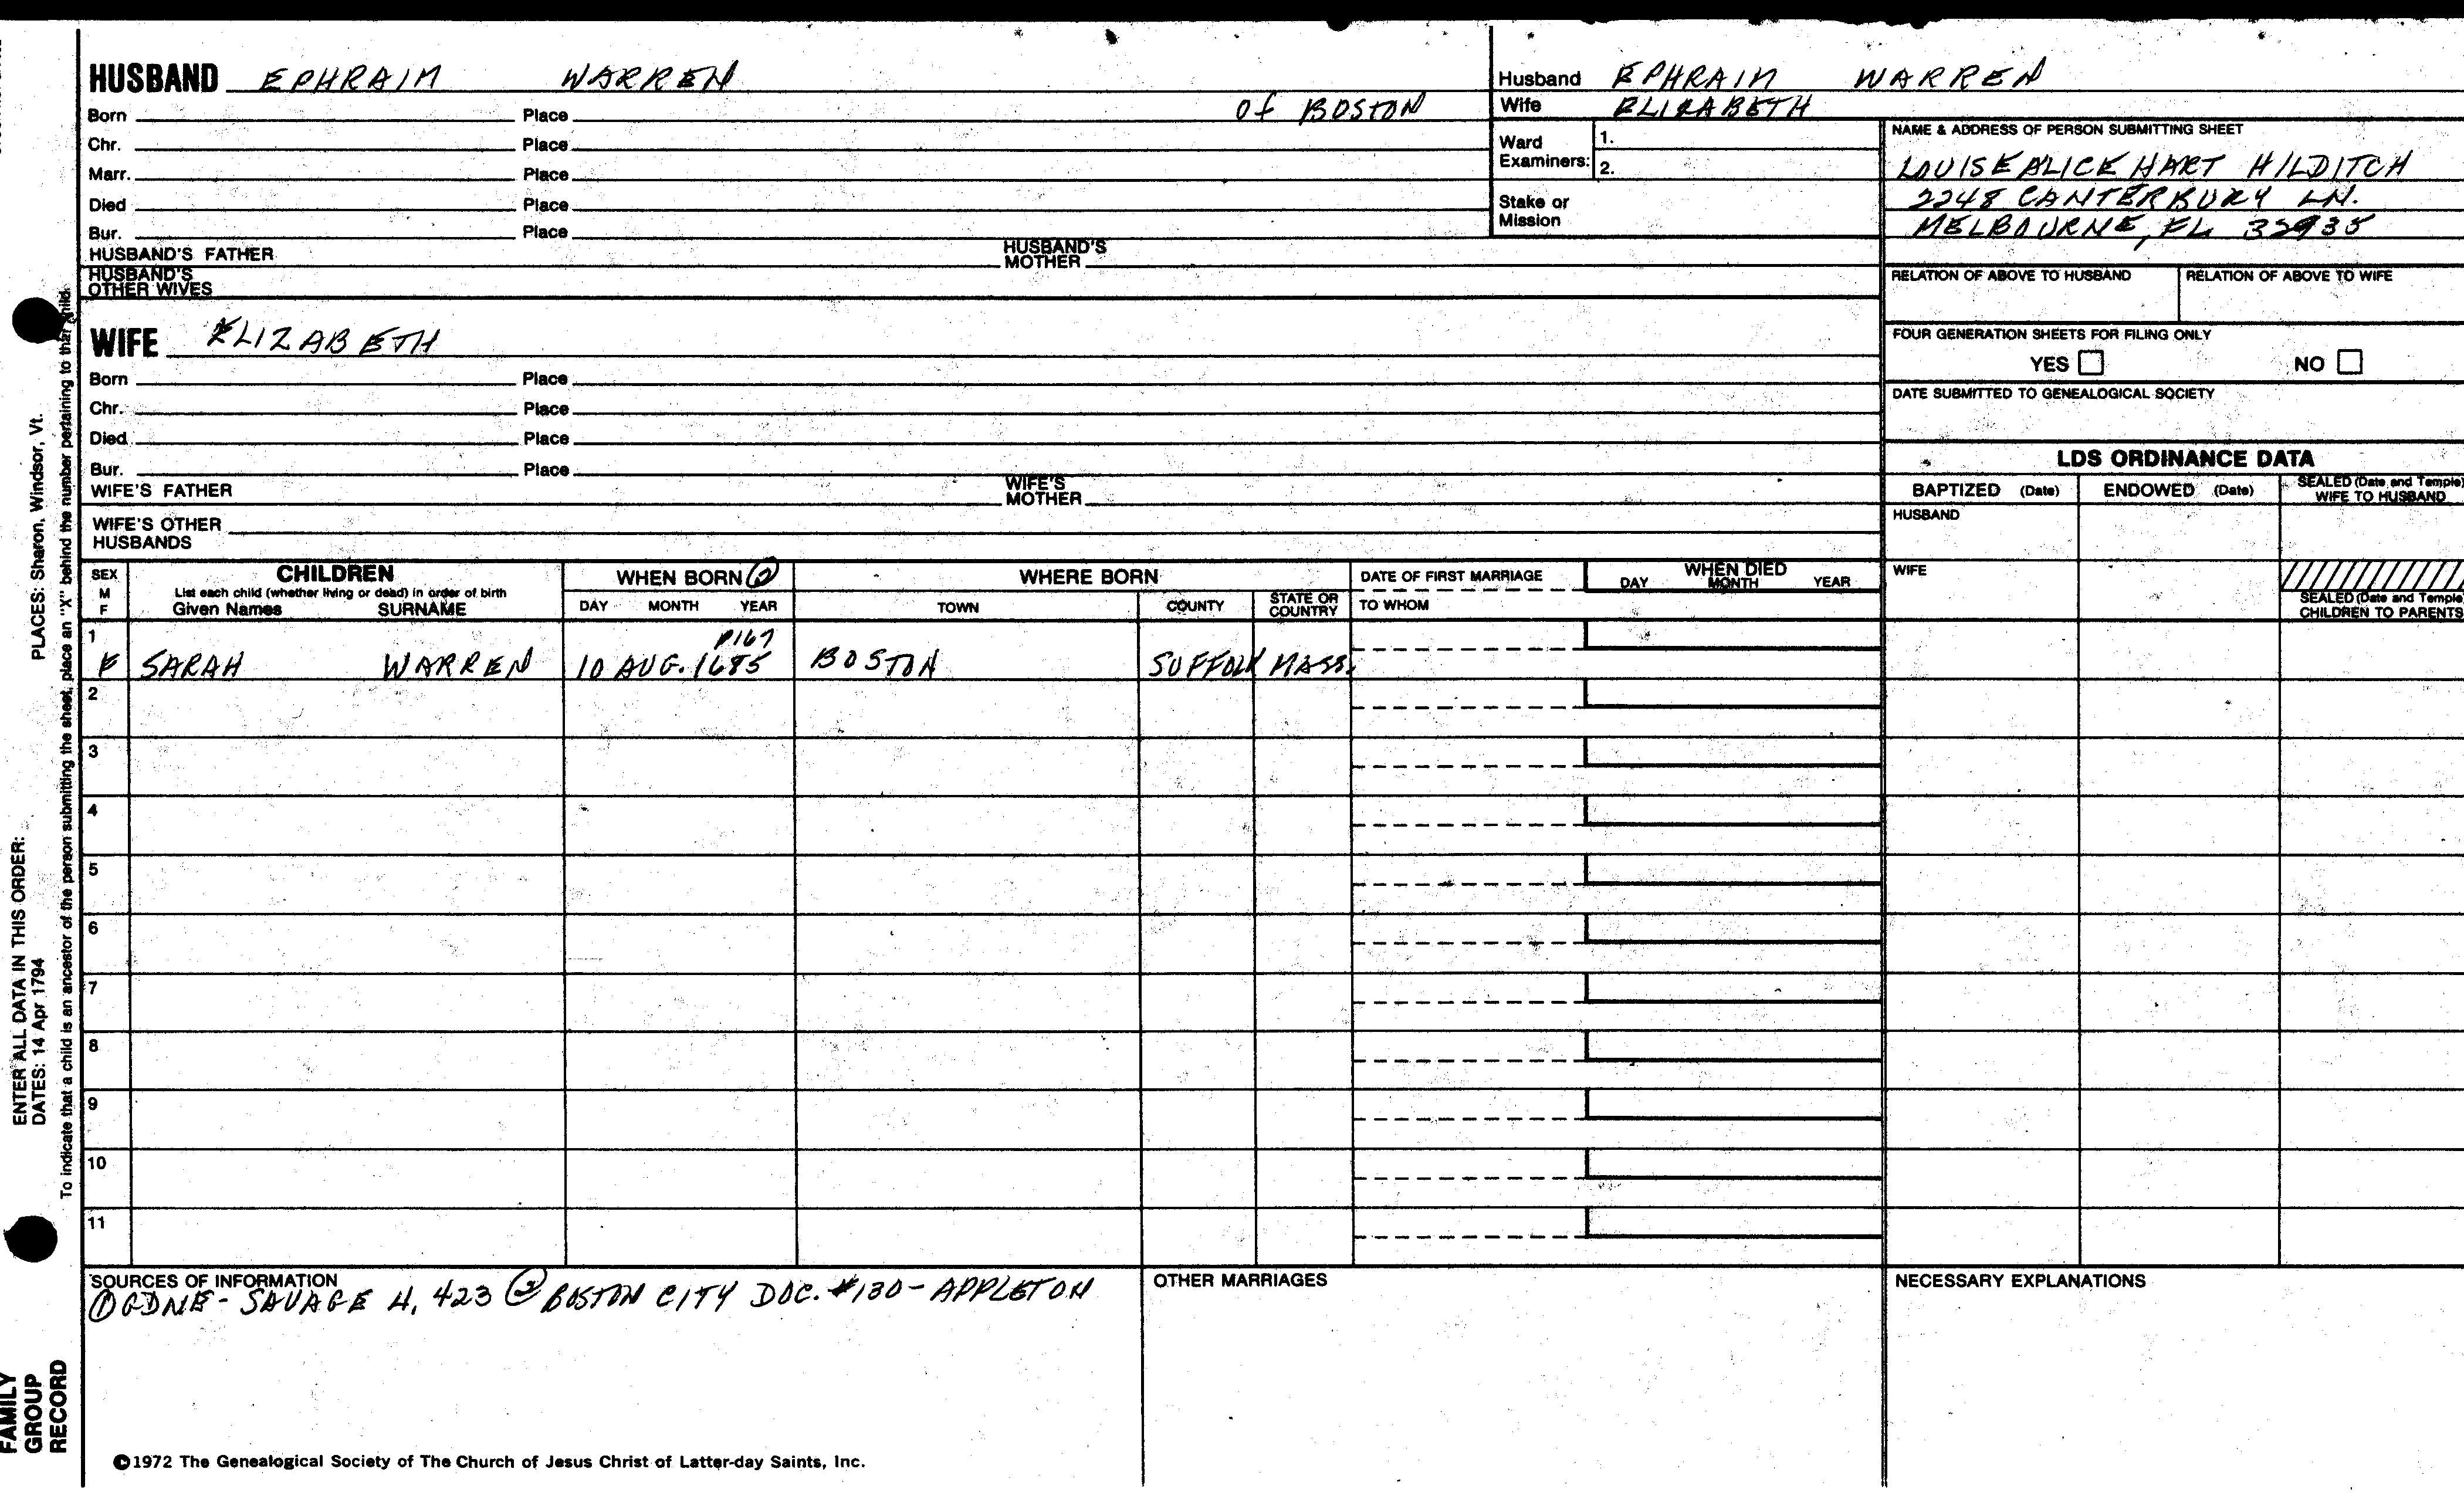 HUSBAND EPHRAIM WARREN
Born Place of BOSTON
Chr. Place
Marr. Place
Died Place
Bur. Place
HUSBAND'S FATHER HUSBAND'S MOTHER
HUSBAND'S OTHER WIVES
WIFE ELIZABETH
Born Place
Chr. Place
Died Place
Bur. Place
WIFE'S FATHER WIFE'S MOTHER
WIFE'S OTHER HUSBANDS
Husband EPHRAIM WARREN
Wife ELIZABETH
Ward Examiners: 1.
2.
Stake or Mission
NAME & ADDRESS OF PERSON SUBMITTING SHEET
LOUISE ALICE HART HILDITCH
2248 CANTERBURY LN.
MELBOURNE, FL 32935
RELATION OF ABOVE TO HUSBAND RELATION OF ABOVE TO WIFE
FOUR GENERATION SHEETS FOR FILING ONLY
YES NO
DATE SUBMITTED TO GENEALOGICAL SOCIETY
LDS ORDINANCE DATA
BAPTIZED (Date) ENDOWED (Date) SEALED (Date and Temple) WIFE TO HUSBAND
HUSBAND
WIFE
SEALED (Date and Temple) CHILDREN TO PARENTS
SEX M F
CHILDREN
List each child (whether living or dead) in order of birth
Given Names SURNAME
WHEN BORN ②
DAY MONTH YEAR
WHERE BORN
TOWN COUNTY STATE OR COUNTRY
DATE OF FIRST MARRIAGE
TO WHOM
WHEN DIED
DAY MONTH YEAR
1 P167
F SARAH WARREN 10 AUG. 1685 BOSTON SUFFOLK MASS.
2
3
4
5
6
7
8
9
10
11
SOURCES OF INFORMATION
① GDNE - SAVAGE 4, 423 ② BOSTON CITY DOC. #130 - APPLETON
OTHER MARRIAGES
NECESSARY EXPLANATIONS
©1972 The Genealogical Society of The Church of Jesus Christ of Latter-day Saints, Inc.
PLACES: Sharon, Windsor, Vt.
ENTER ALL DATA IN THIS ORDER:
DATES: 14 Apr 1794
To indicate that a child is an ancestor of the person submitting the sheet, place an "X" behind the number pertaining to that child.
FAMILY
GROUP
RECORD